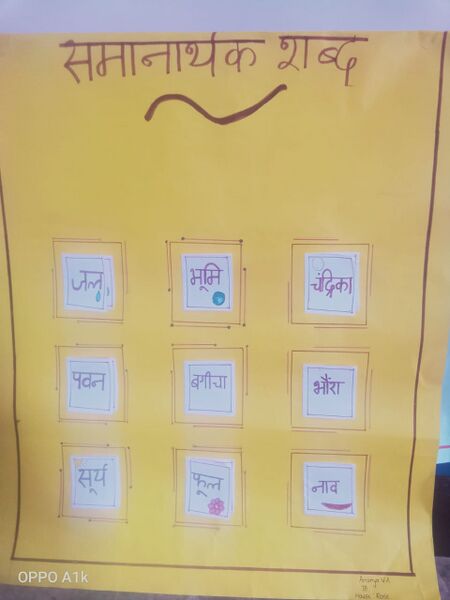 समानार्थक शब्द
जल भूमि चंद्रिका
पवन बगीचा भौंरा
सूर्य फूल नाव
OPPO A1k
Ananya V.A
House: Rose